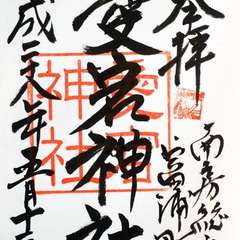 登拝
南房総
富浦
愛宕神社
愛宕
神社
平成二十八年五月十